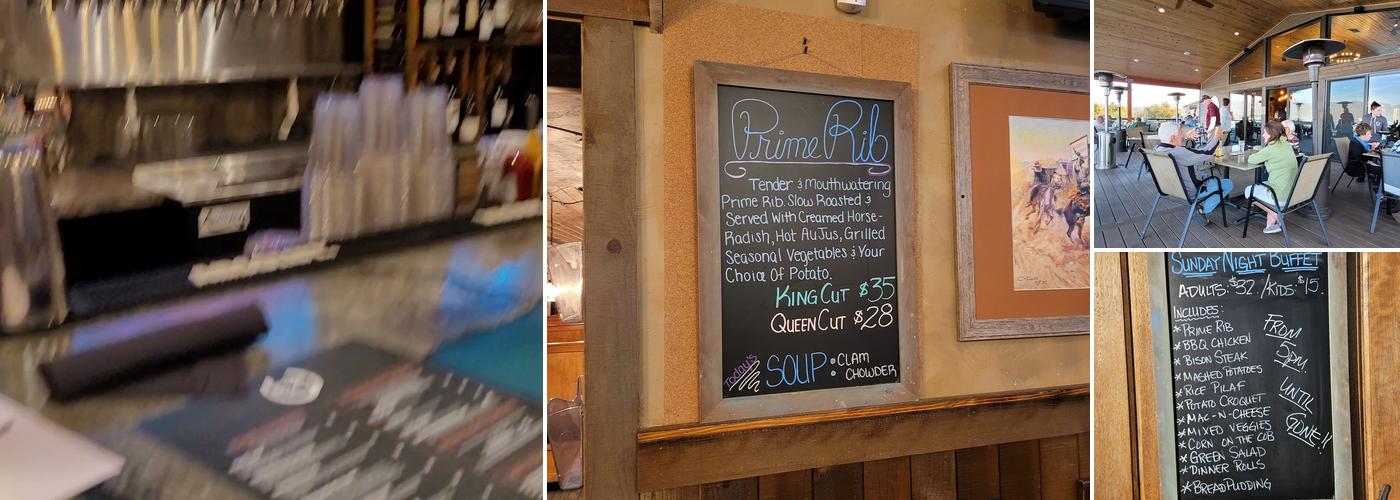 Prime Rib
Tender & Mouthwatering
Prime Rib. Slow Roasted &
Served With Creamed Horse-
Radish, Hot Au Jus, Grilled
Seasonal Vegetables & Your
Choice Of Potato.
King Cut $35
Queen Cut $28
Today's
SOUP: CLAM
CHOWDER
SUNDAY NIGHT BUFFET
ADULTS: $32. / KIDS: $15.
INCLUDES:
* PRIME RIB
* BBQ CHICKEN
* BISON STEAK
* MASHED POTATOES
* RICE PILAF
* POTATO CROQUET
* MAC-N-CHEESE
* MIXED VEGGIES
* CORN ON THE COB
* GREEN SALAD
* DINNER ROLLS
* BREAD PUDDING
FROM
5PM.
UNTIL
GONE!!